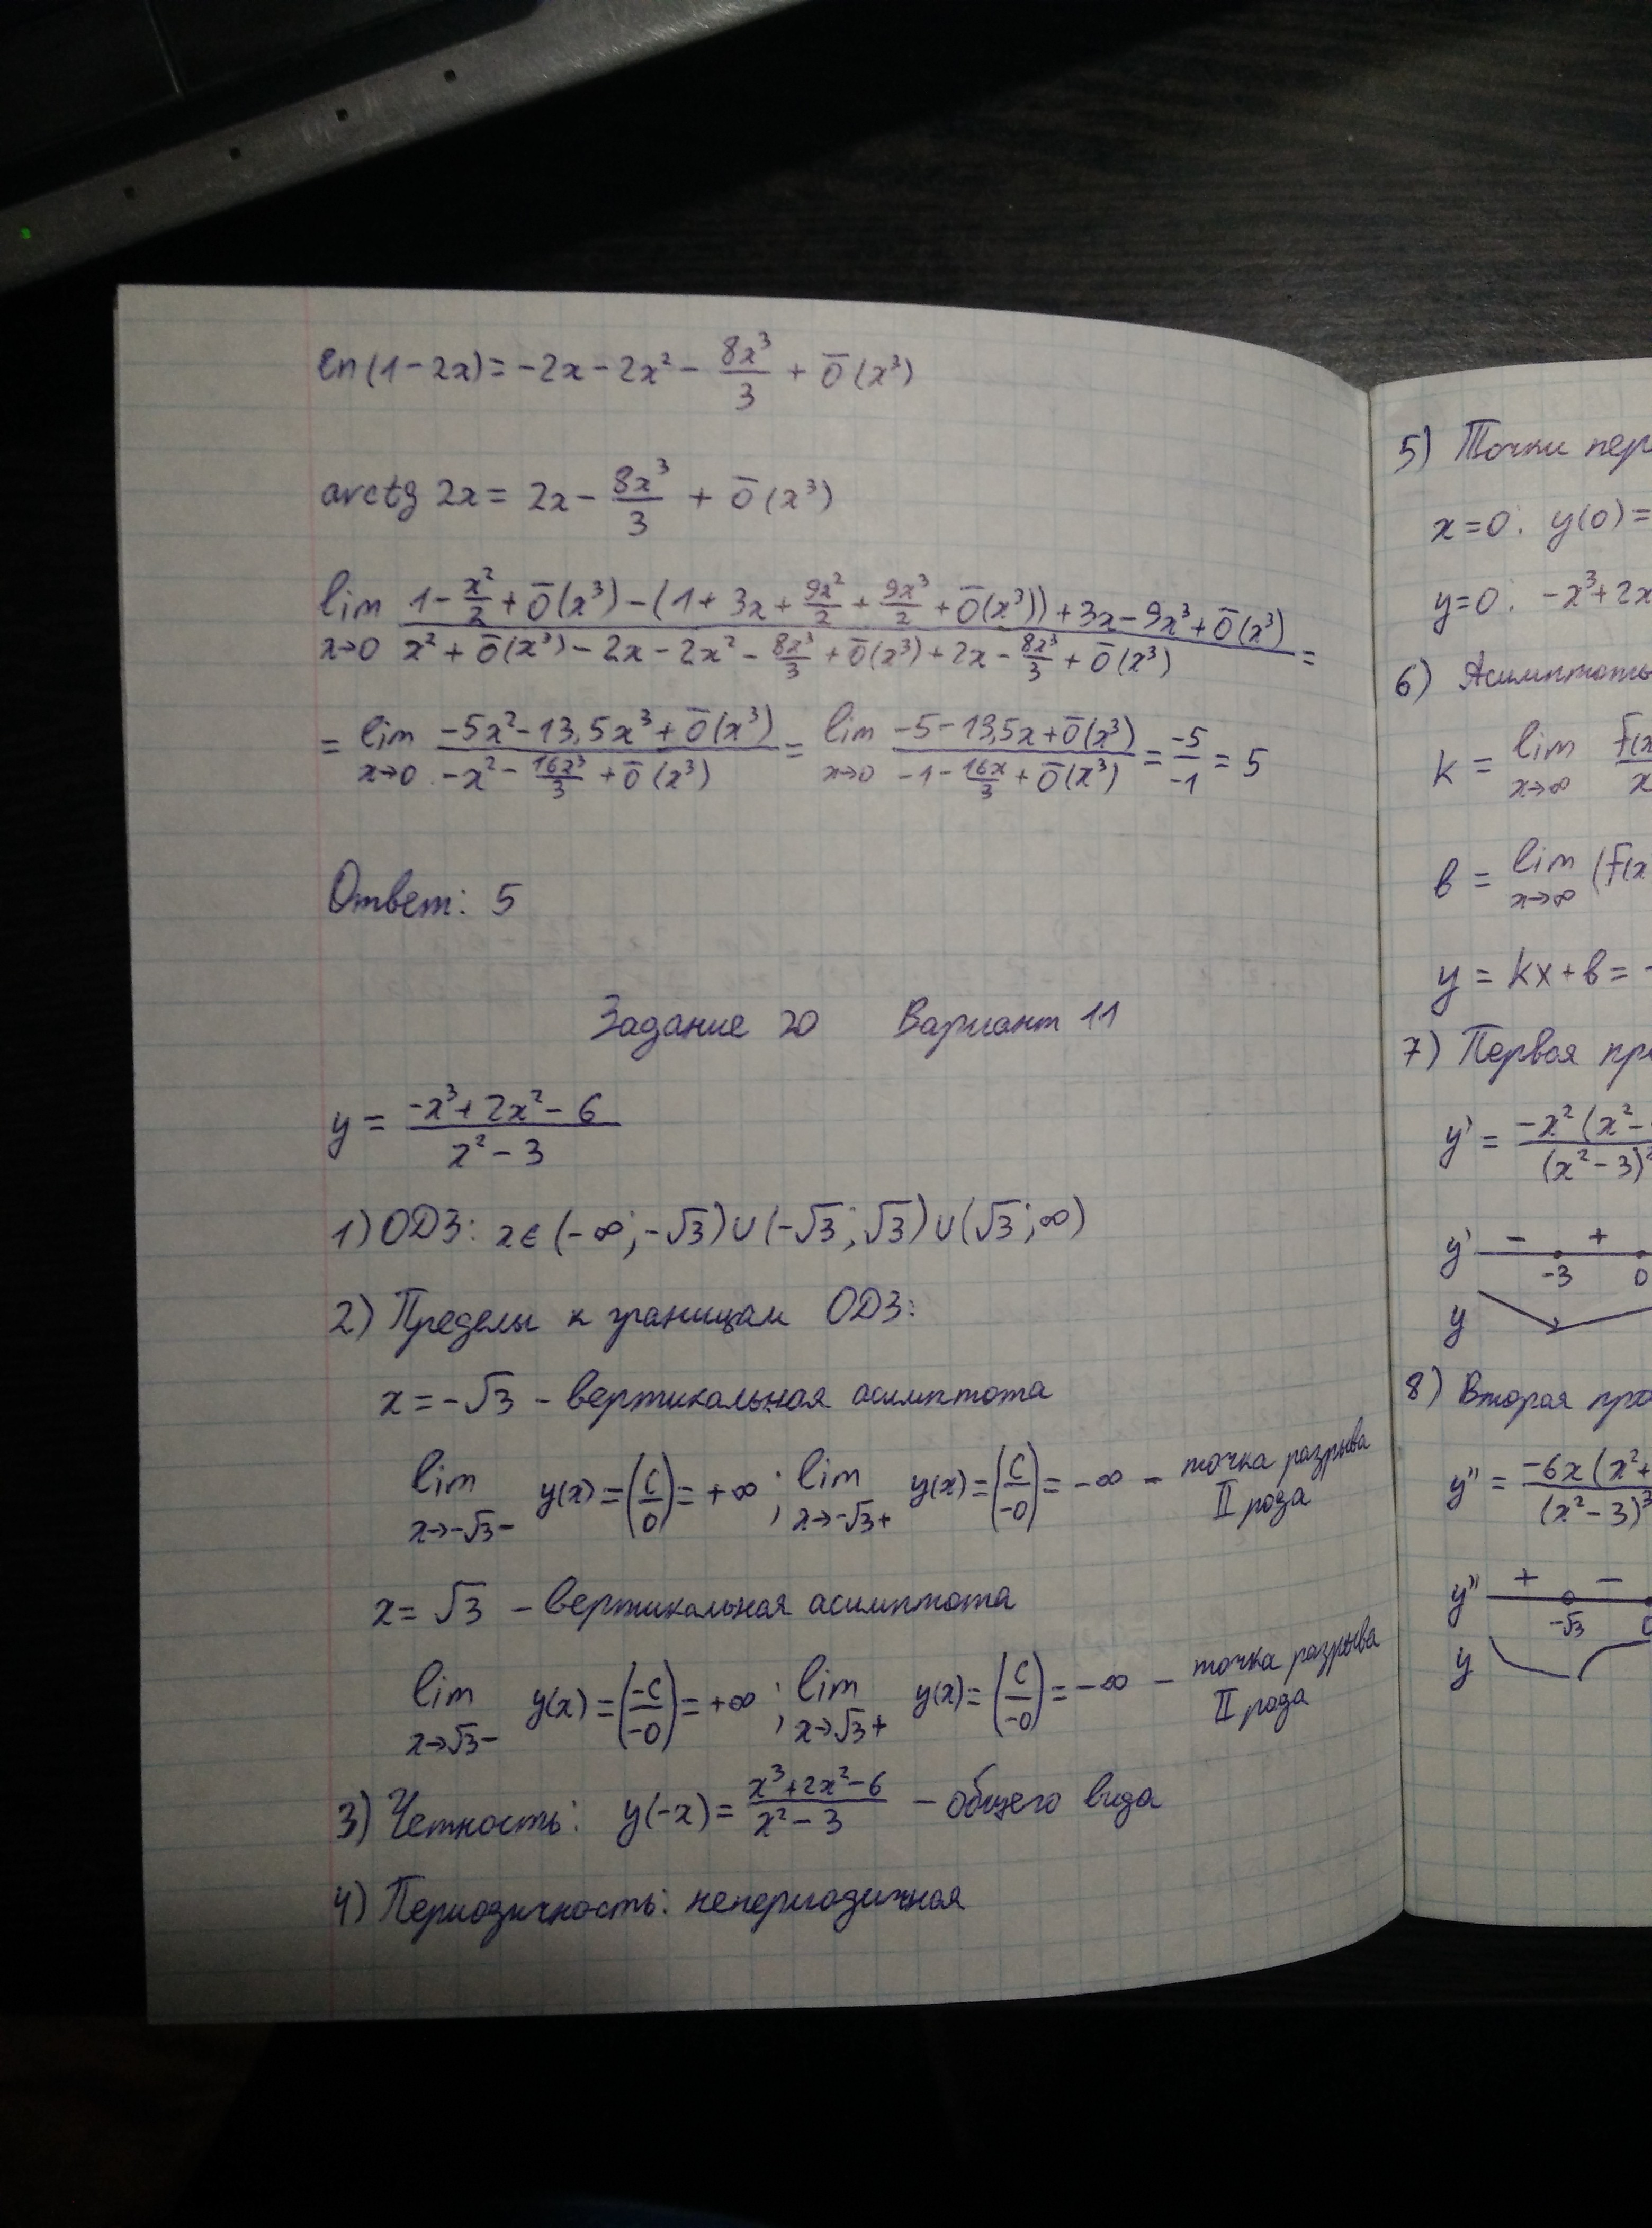 ln(1-2x)= -2x-2x² - 8x³/3 + ō(x³)
arctg 2x = 2x - 8x³/3 + ō(x³)
lim x→0 (1 - x²/2 + ō(x³) - (1 + 3x + 9x²/2 + 9x³/2 + ō(x³)) + 3x - 9x³ + ō(x³)) / (x² + ō(x³) - 2x - 2x² - 8x³/3 + ō(x³) + 2x - 8x³/3 + ō(x³)) =
= lim x→0 (-5x² - 13,5x³ + ō(x³)) / (-x² - 16x³/3 + ō(x³)) = lim x→0 (-5 - 13,5x + ō(x³)) / (-1 - 16x/3 + ō(x³)) = -5/-1 = 5
Ответ: 5
Задание 20 Вариант 11
y = (-x³+2x²-6) / (x²-3)
1) ОДЗ: x∈(-∞;-√3)∪(-√3;√3)∪(√3;∞)
2) Пределы к границам ОДЗ:
x = -√3 - вертикальная асимптота
lim x→-√3- y(x) = (C/0) = +∞; lim x→-√3+ y(x) = (C/-0) = -∞ - точка разрыва II рода
x = √3 - вертикальная асимптота
lim x→√3- y(x) = (-C/-0) = +∞; lim x→√3+ y(x) = (C/-0) = -∞ - точка разрыва II рода
3) Четность: y(-x) = (x³+2x²-6) / (x²-3) - общего вида
4) Периодичность: непериодичная
5) Точки пер
x=0: y(0)=
y=0: -x³+2x
6) Асимптоты
k = lim x→∞ f(x / x
b = lim x→∞ (f(x
y = kx+b = -
7) Первая пр
y' = -x²(x²- / (x²-3)²
y' - + -3 0
y
8) Вторая про
y'' = -6x(x²+ / (x²-3)³
y'' + - -√3
y